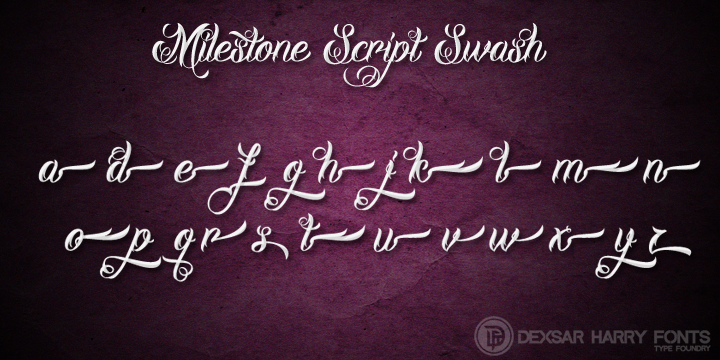 Milestone Script Swash
a d e f g h j k l m n
o p q r s t u v w x y z
DEXSAR HARRY FONTS
TYPE FOUNDRY